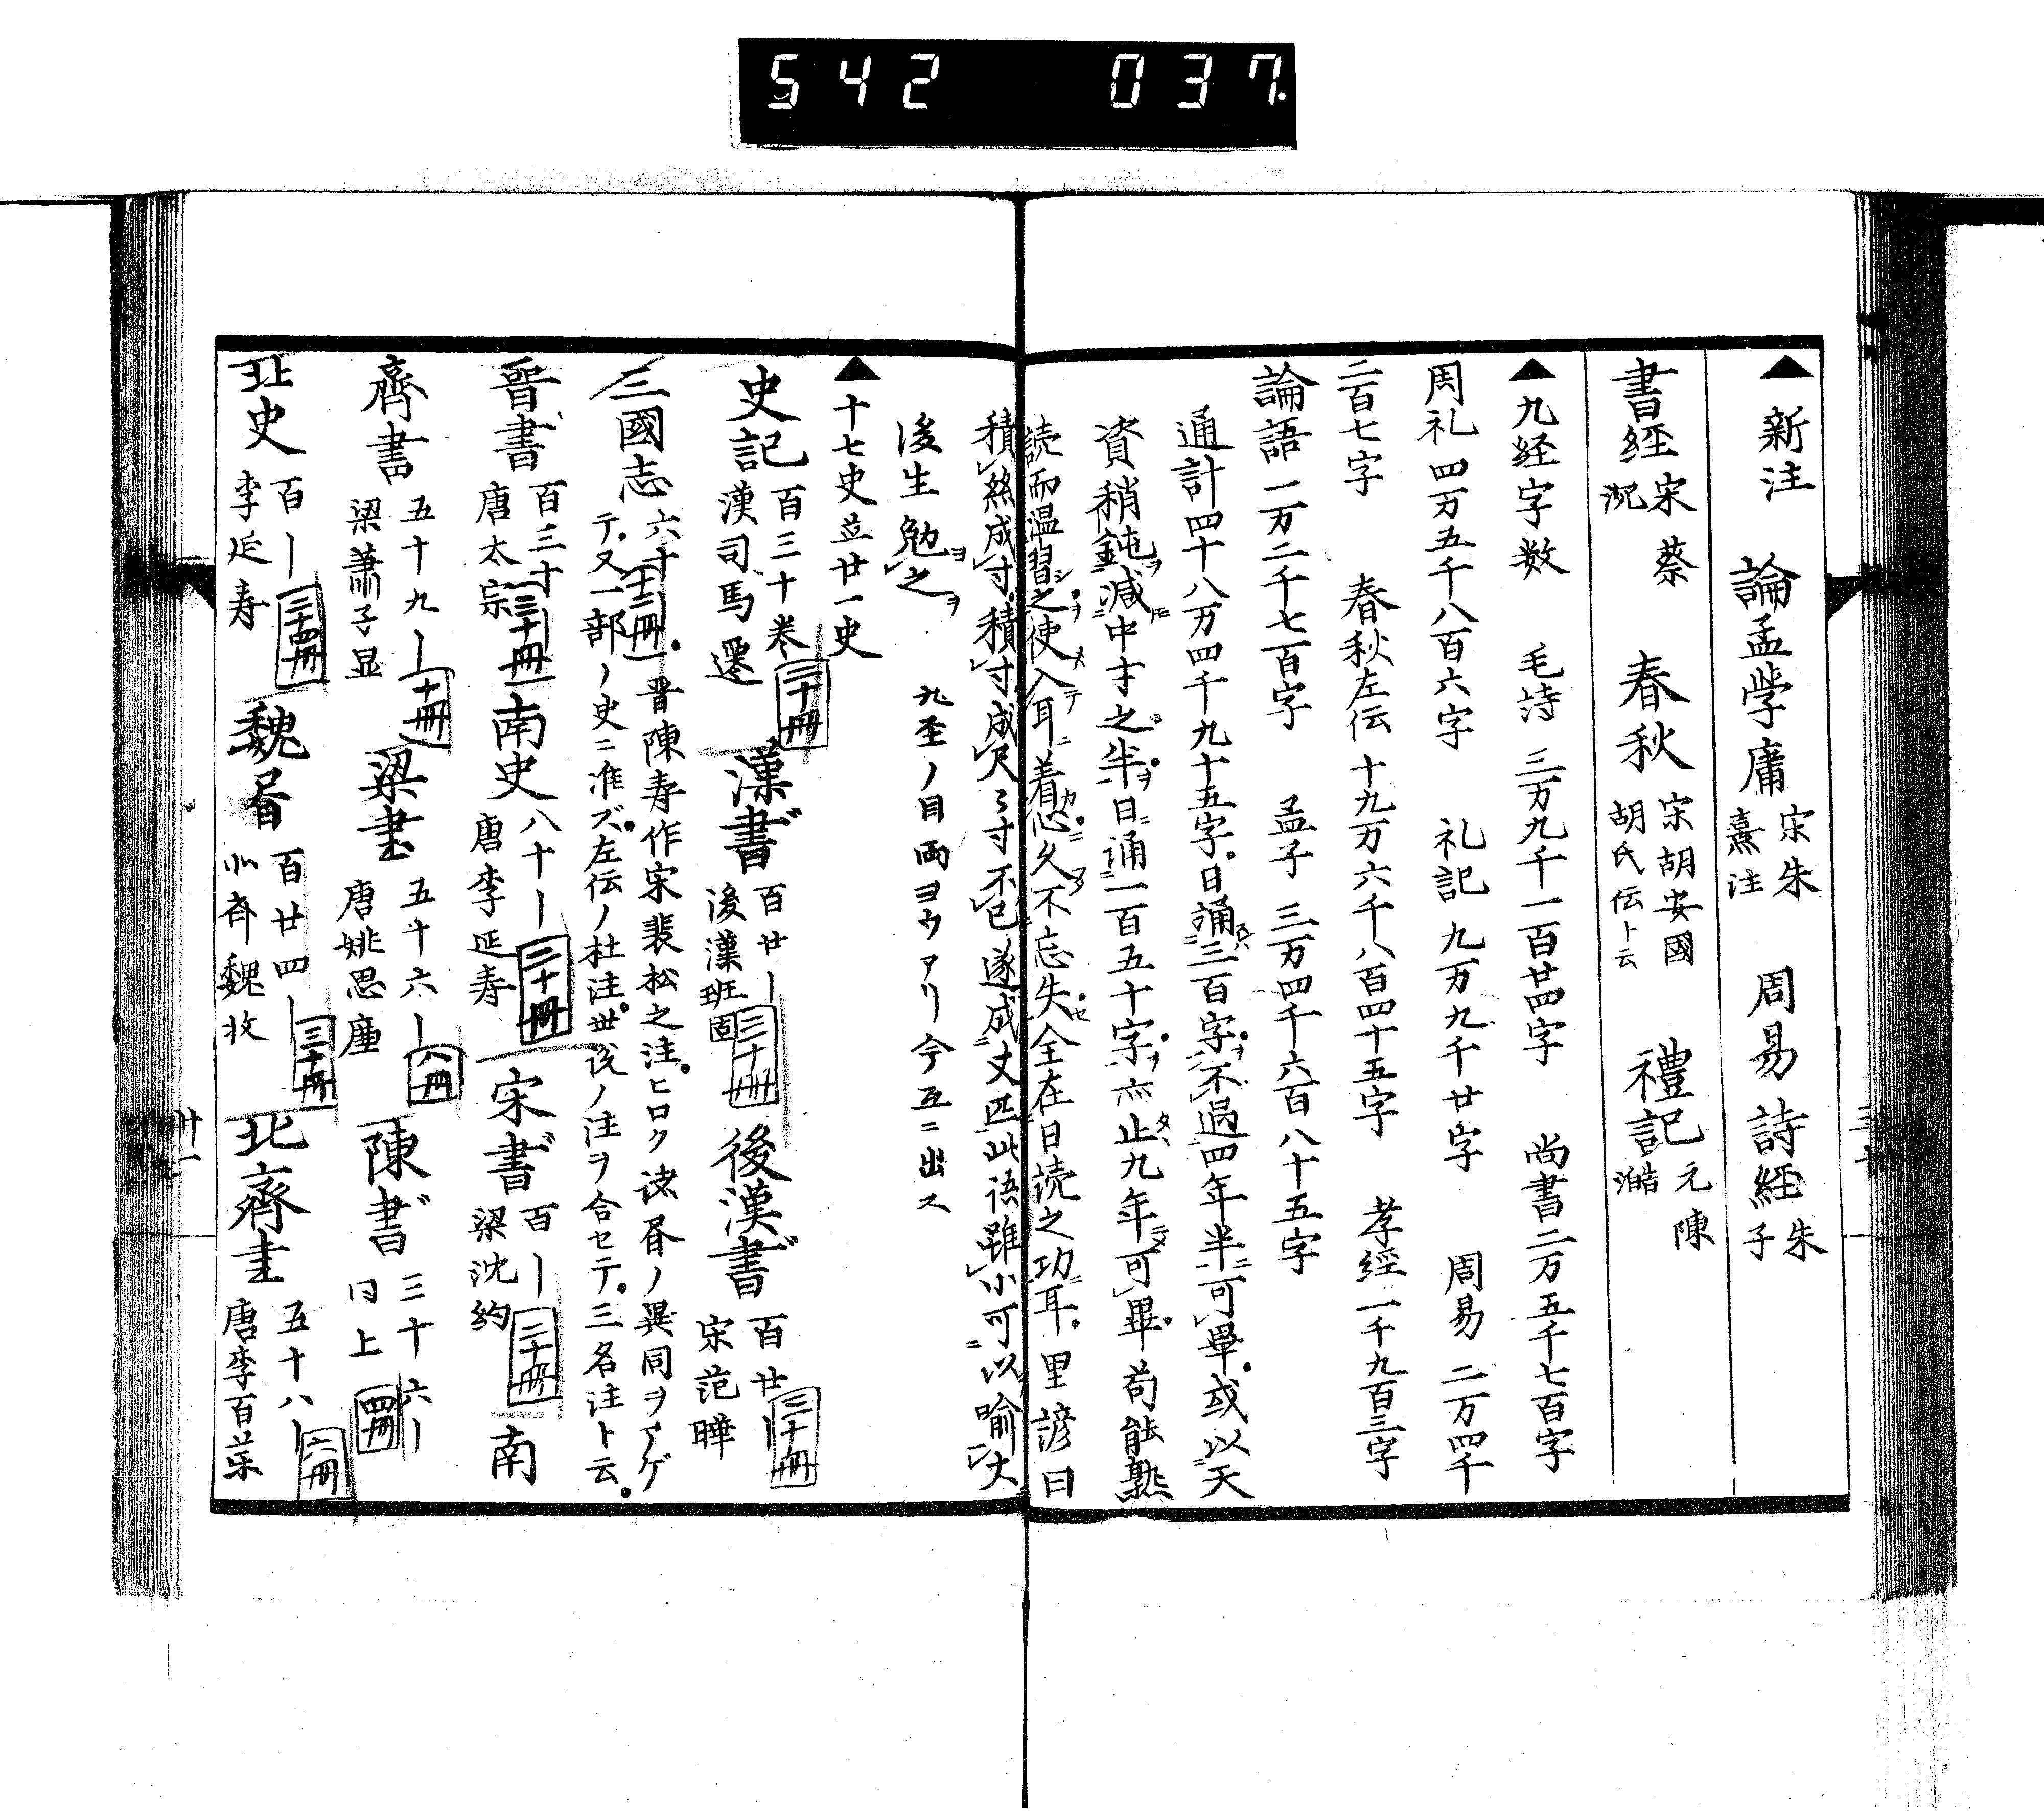 542 037.
▲新注 論孟学庸 宋朱熹注 周易 詩経 朱子
書経 宋蔡沉 春秋 宋胡安國 胡氏伝ト云 禮記 元陳澔
▲九経字数 毛詩 三万九千一百廿四字 尚書 二万五千七百字
周礼 四万五千八百六字 礼記 九万九千廿字 周易 二万四千
二百七字 春秋左伝 十九万六千八百四十五字 孝經 一千九百三字
論語 一万二千七百字 孟子 三万四千六百八十五字
通計四十八万四千九十五字。日誦三百字。不過四年半可畢。或以天
資稍鈍減中才之半日誦一百五十字。亦止九年可畢。苟能熟
読而温習之使入耳着心久不忘失全在日読之功耳。里諺曰
積絲成寸。積寸成尺。〻寸不已遂成丈匹此语雖小可以喻大
後生勉之 九圣ノ目両ヨウアリ今互ニ出ス
▲十七史並廿一史
史記 百三十巻 漢司馬遷 三十冊 漢書 百廿｜ 後漢班固 三十冊 後漢書 百廿｜ 宋范曄 三十冊
三國志 六十 十二冊 晋陳寿作宋裴松之注。ヒロク諸書ノ異同ヲアゲ
テ。又一部ノ史ニ准ズ。左伝ノ杜注。世説ノ注ヲ合セテ。三名注ト云。
晋書 百三十 唐太宗 三十冊 南史 八十｜ 唐李延寿 二十冊 宋書 百｜ 梁沈約 二十冊 南
齊書 五十九｜ 梁萧子显 十冊 梁書 五十六｜ 唐姚思廉 八冊 陳書 三十六｜ 同上 四冊
北史 百｜ 李延寿 三十四冊 魏書 百廿四｜ 北斉魏收 三十冊 北齊書 五十八｜ 唐李百薬 六冊
三十
卅一